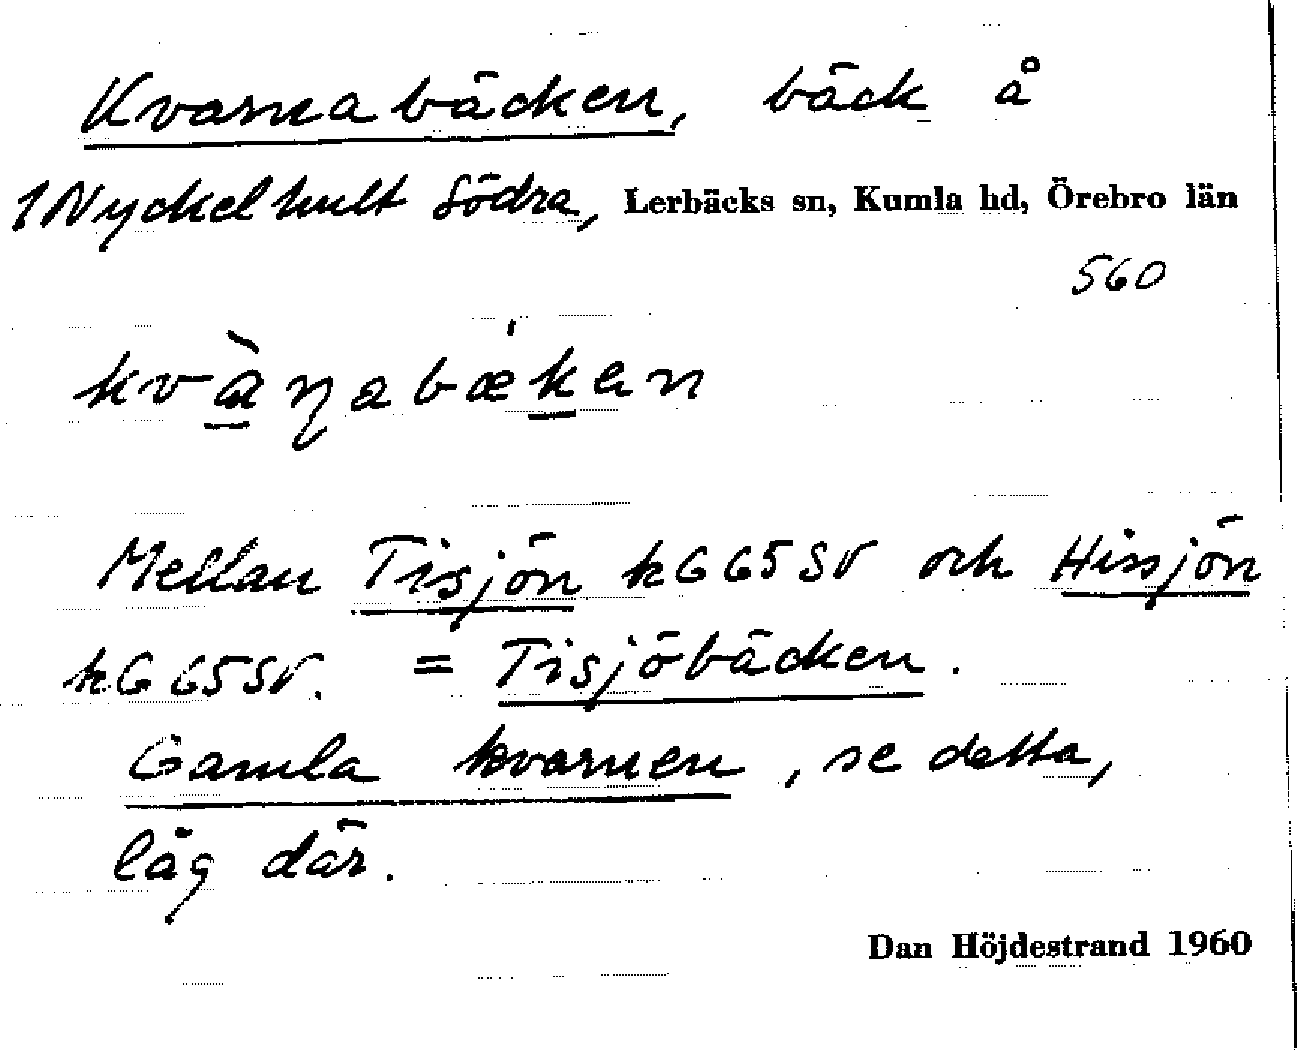 Kvarnabäcken, bäck å
1 Nyckelhult Södra, Lerbäcks sn, Kumla hd, Örebro län
560
kvàṇabǽkən
Mellan Tisjön k6 65 SV och Hissjön
k6 65 SV. = Tisjöbäcken.
Gamla kvarnen, se detta,
låg där.
Dan Höjdestrand 1960